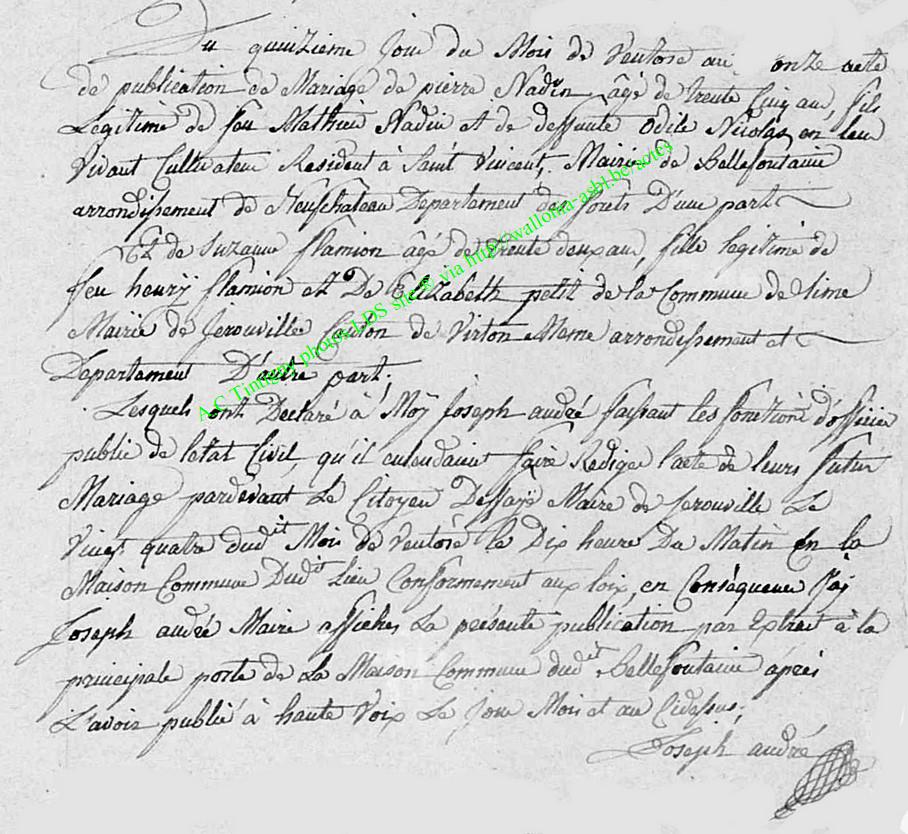 Du quinzieme Jour du Mois de Ventose an onze acte
de publication de Mariage de pierre Nadin âgé de trente Cinq ans, fils
Legitime de feu Mathieu Nadin et de deffunte Odile Nicolas en leur
Vivant Cultivateur Resident à Saint Vincent, Mairie de Bellefontaine
arrondissement de Neufchateau Departement des forets D'une part
Et de Suzanne flamion âgé de trente deux ans, fille legitime de
feu henrÿ flamion et De Elizabeth petit de la Commune de
Mairie de Jerouville Canton de Virton Meme arrondissement et
Departement D'autre part;
Lesquels ont Declaré à Moÿ Joseph andré faisant les fonctions d'officier
public de letat Civil, qu'il entendaient faire Rediger l'acte de leurs futur
Mariage pardevant Le Citoyen Maire de Jerouville Le
Vingt quatre dudit Mois de Ventose le Dix heure Du Matin En la
Maison Commune Dudit Lieu Conformement aux loix, en Conséquence J'ai
Joseph andré Maire affichez La présente publication par Extrait à la
principale porte de La Maison Commune dudit Bellefontaine áprés
L'avoir publié à haute Voix Le Jour Mois et an Cidessus;
Joseph andré
A.C Tintigny photos LDS site & via http://wallonia-asbl.be/actes